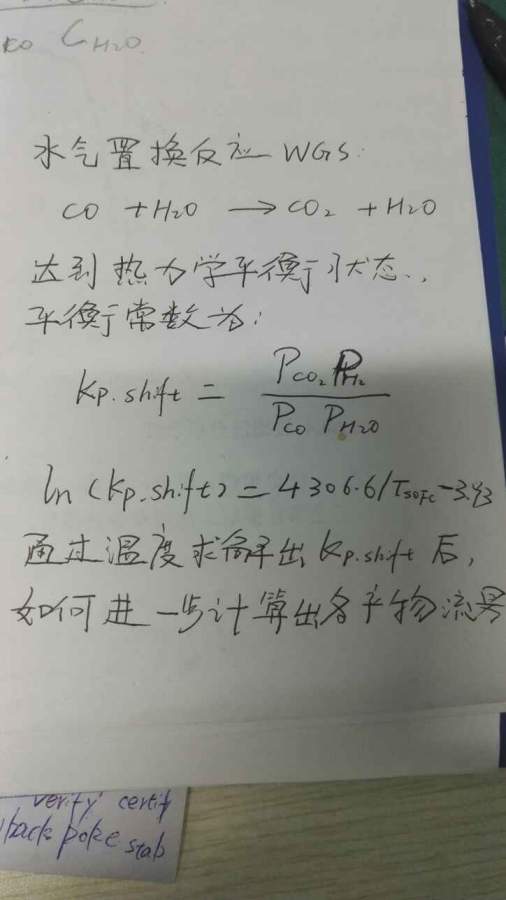 CO CH2O
水气置换反应 WGS:
CO + H2O → CO2 + H2O
达到热力学平衡状态,
平衡常数为:
Kp.shift = PCO2 PH2 / PCO PH2O
ln (Kp.shift) = 4306.6/TSOFC - 3.93
通过温度求解出 Kp.shift 后,
如何进一步计算出各产物流量
verify certif
back poke stab